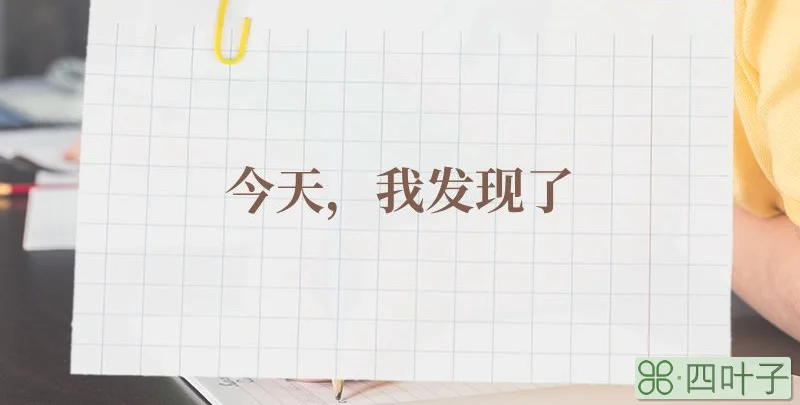 今天，我发现了
⌘·四叶子